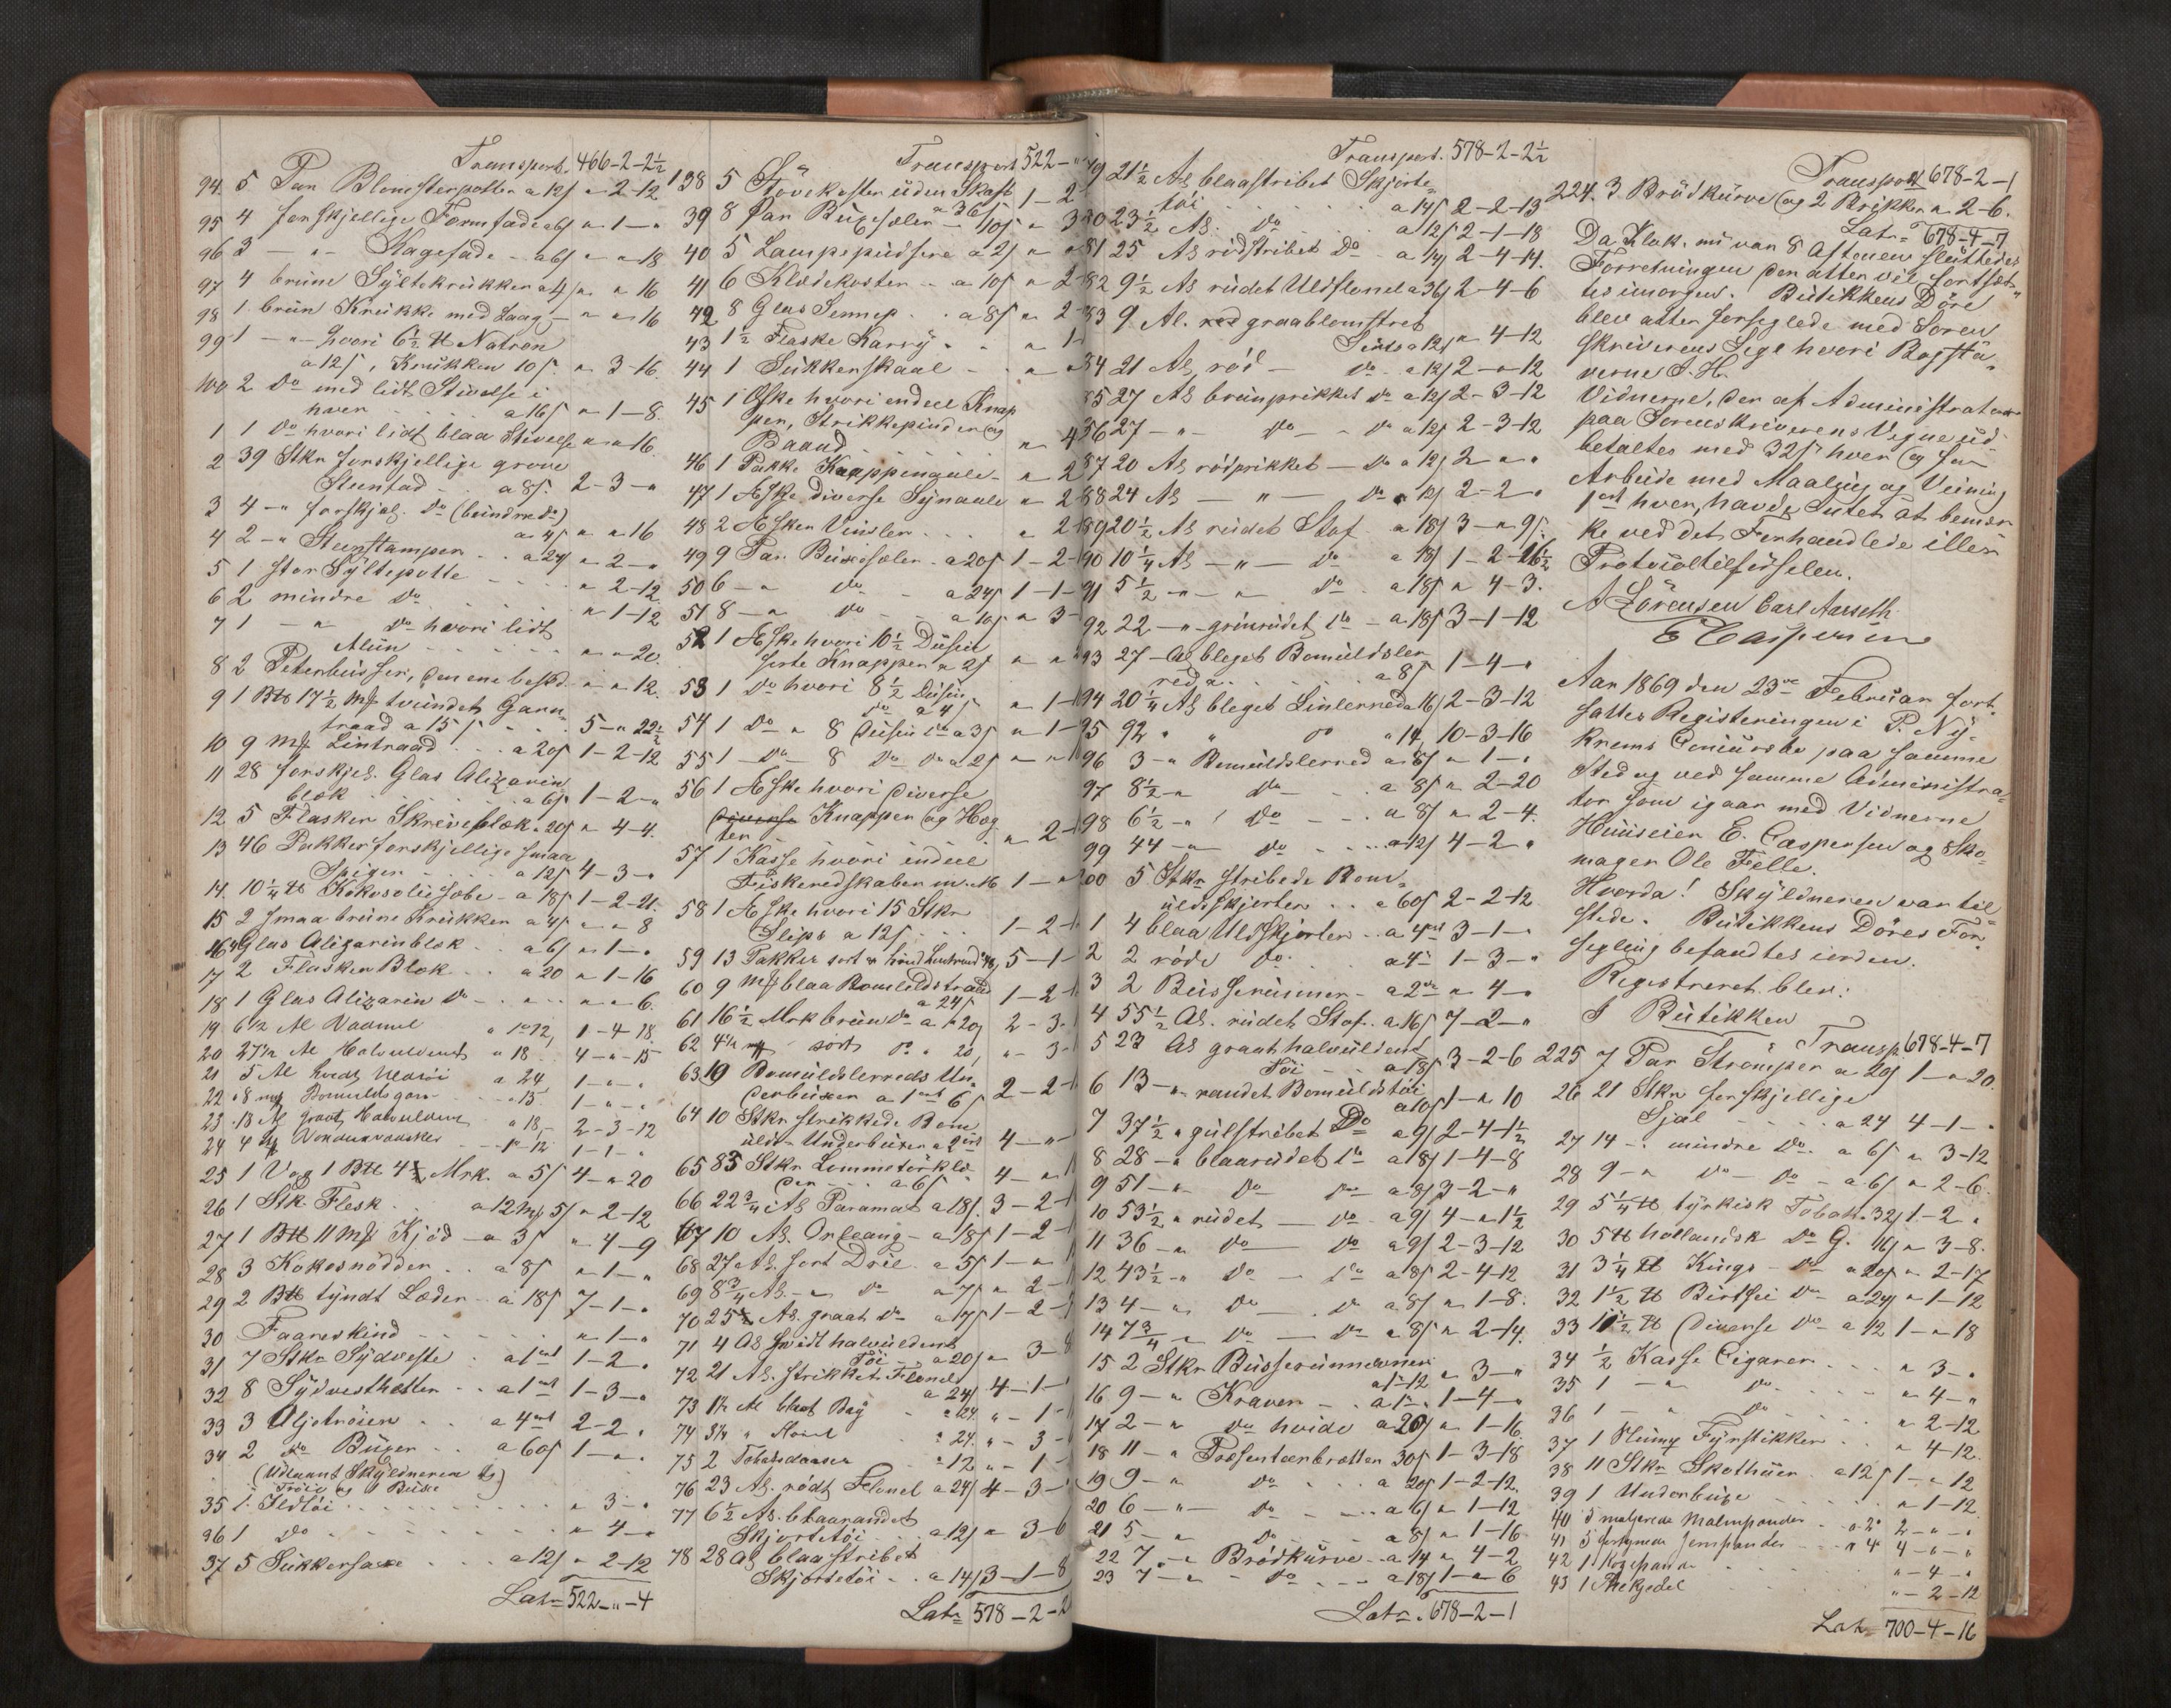 Transport. 466-2-2½
94. 5 Par Blomsterpotter a 12s „ 2-12
95 4 forskjellige Formfade a 6s „ 1 - „
96 3 - „ - Kagefade - a 6s „ „ 18
97 4 brune Syltekrukker a 4s „ „ 16
98 1 brun Krukke med Laag - „ „ 16
99 1 - „ - hvori 6½ ℔ Natron
a 12s, Krukken 10s „ 3-16.
100 2 do med lidt Stivelse i
hver a 16s „ 1-8.
1 1 do hvori lidt blaa Stivelse „ „ 16.
2 39 Stkr forskjellige grove
Steentad a 8s. 2-3-„
3 4 - „ forskjel. do (beindrede)
a 4s „ „ 16
4 2 - „ Steenstamper a 24 „ 2 - „
5 1 stor Syltepotte „ 2-12
6 2 mindre do „ 1-12
7 1 - „ do hvori lidt
Alun „ „ 20.
8 2 Peterbusser, den ene besk. „ „ 12.
9 1 B℔ 17½ Mk tvundet Garn-
traad a 15s 5 - „ 22½
10 9 Mk Lintraad a 20s 1-2-12
11 28 forskjel. Glas Alizarin
blæk a 6s 1-2-„
12 5 Flasker Skriveblæk a 20s „ 4-4.
13 46 Pakker forskjellige smaa
Spiger a 12s 4-3-„
14. 10¼ ℔ Kokosoliesæbe - a 18s 1-2-21.
15 2 smaa brune Krukker a 4s „ „ 8
16 4 Glas Alizarinblæk a 6s „ 1 - „
17 2 Flasker Blæk a 20 „ 1-16
18 1 Glas Alizarin do „ „ 6.
19 6½ Al Vadmel 1-4-18.
20 27½ Al Halvuldent a 18 4-„-15
21 5 Al hvidt Uldtöi a 24 1-„-„
22 8 mk Bomuldsgarn a 15 1-„-„
23 18 Al graat Halvuldent a 18, 2-3-12
24 4 1-1-„
25 1 Vog 1 B℔ 4½ Mrk. a 5s 4-„-20
26 1 Stk. Flesk a 12 Mk 5s „ 2-12
27 1 B℔ 11 Mk Kjöd a 3s „ 4-9
28 3 Kokosnödder a 8s „ 1-„
29 2 B℔ tyndt Læder a 18s 7-1-„
30 Faareskind „ 1-„
31 7 Stkr Sydveste a 1 ort 1-2-„
32 8 Sydvesthetter a 1 ort 1-3-„
33 3 Oljetröier a 4 ort 2-2-„
34 2 do Buxer a 60s 1-„-„
(Udlaant Skyldneren 1
Tröie og 1 Buxe)
35 1 Ildtöi „ 3-„
36 1 do „ 4-„
37 5 Sukkersaxe a 12s „ 2-12
Lats 522-„-4
Transport 522-„
138 5 Stövekoster uden Skaft
a 36s 1-2
39 8 Par Buxesæler - 10s „ 3
40 5 Lampepudsere a 2s „ „
41 6 Klædekoster a 10s „ 2
42 8 Glas Sennep a 8s „ 2
43 1½ Flaske Karry „ 1
44 1 Sukkerskaal „ „
45 1 Æske hvori endeel Knap
per, Strikkepinder og
Baand „ 4
46 1 Pakke Knappenaale „ 2
47 1 Æske diverse Synaale „ 2
48 2 Æsker Vinsler „ 2
49 9 Par Buxesæler a 20s 1-2
50 6 - „ do a 24s 1-1-
51 8 - „ do a 10s „ 3-
52 1 Æske hvori 10½ Dusin
sorte Knapper a 2s „ „
53 1 do hvori 8½ Dusin
do a 4s „ 1-
54 1 do „ 8 Dusin do a 3s „ 1-
55 1 do 8 do do a 2s „ „
56 1 Æske hvori diverse
diverse Knapper og Hæg
ter „ 2-
57 1 Kasse hvori endeel
Fiskeredskaber m.m 1-„
58 1 Æske hvori 15 Stkr
Slips a 12s 1-2-
59 13 Pakker sort & hvid 5-1-
60 9 Mk blaa Bomuldstraad
a 24s 1-2-
61 16½ Mrk brun do a 20s 2-3-
62 4½ mk sort do a 20, „-3-
63 19 Bomuldslerreds Un-
derbuxer a 1 ort 6s 2-2-
64 10 Stkr strikkede Bom-
ulds Underbuxer a 2 ort 4-„-
65 83 Stkr Lommetörklæ-
der a 6s 4-„
66 22¾ Al Paramat a 18s. 3-2-
67 10 Al. Orleang - a 18s 1-2-
68 27 Al. sort Dreil a 5s 1-„
69 8¾ Al. - „ do a 7s „ 2-
70 25½ Al. graat do a 17s 1-2-
71 4 Al hvidt halvuldent
Töi a 20s „ 3-8
72 21 Al. strikket Flonel
a 24s 4-1-
73 1½ Al blaat Bay a 24 „-1-
74 3½ „ a 24. „-3-
75 2 Tobaksdaaser a 12 „-1-
76 23 Al. rödt Flonel a 24s 4-3-
77 6½ Al. blaarandet
Skjortetöi a 12s „ 3-6
78 28 Al blaastribet
Skjortetöi a 14s 3-1-8
Lats 578-2-2
Transport. 578-2-2½
79 21½ Al blaastribet Skjorte-
töi a 14s 2-2-13
80 23½ Al. do a 12s 2-1-18
81 25 Al rödstribet do a 14s 2-4-14.
82 9½ Al rudet Uldflonel a 36s 2-4-6
83 9 Al. rød graablomstret
Sirts a 12s „ 4-12
84 21 Al, röd - do a 12s 2-„-12
85 27 Al brunprikket do a 12s 2-3-12
86 27 - „ - do - do a 12s 2-3-12
87 20 Al rödprikket - do a 12s 2-„-„
88 24 Al - „ - do a 12s 2-2-„
89 20½ Al rudet Stof a 18s 3-„-9s.
90 10¼ Al - „ - do a 18s 1-2-16½
91 5½ - „ - „ do a 18s „ 4-3.
92 22 - „ - grönrudet do - a 18s 3-1-12
93 27 - Al bleget Bomuldsler-
red a a 8s 1-4-„
94 20¼ Al bleget Linlerred a 16s 2-3-12
95 92 „ „ do „ 14s 10-3-16
96 3 - „ Bomuldslerred a 8s „ 1-„
97 8½ - „ do a 8s „ 2-20
98 6½ - „ do a 8s „ 2-4.
99 44 - „ do a 12s 4-2-„
200 5 Stkr stribede Bom-
uldsskjorter a 60s 2-2-12.
1 4 blaa Uldskjorter a 4 ort 3-1-„
2 2 röde do. a 4 ort 1-3-„
3 2 Busseruuner - a 2 ort „ 4-„
4 55½ Al. rudet Stof a 16s 7-2-„
5 23 Al graat halvuldent
Töi a 18s 3-2-6
6 13 - „ randet Bomuldstöi
a 10s 1-„-10
7 37½ „ gulstribet do a 9s 2-4-1½
8 28 - „ blaarudet do a 8s 1-4-8
9 51 - „ do do a 8s 3-2-„
10 53½ „ rudet - do a 9s 4-„-1½
11 36 - „ do do a 9s 2-3-12
12 43½ - „ do - do a 8s 2-4-12
13 4 - „ do - do a 8s „ 1-8.
14 7¾ - „ do - do a 8s „ 2-14.
15 2 Stkr Busseruuner
a 1 ort 12 „ 3-„
16 9 - „ Kraver - a 1 ort 1-4-„
17 2 - „ do hvide a 20s „ 1-16.
18 11 - „ Præsenteerbretter 30s 1-3-18
19 9 - „ do a 20s 1-2-12.
20 6 - „ - do a 6s „ 1-12
21 5 - „ do a 8s „ 1-16.
22 7 - „ Brödkurve a 14 „ 4-2
23 7 - „ - do a 18s 1-„-6
Lats. 678-2-1
Transport 678-2-1
224. 3 Brödkurve og 2 Brikker „ 2-6.
Lats 678-4-7
Da Klok. nu var 8 Aftenen sluttedes
Forretningen der atter vil fortsæt-
tes imorgen. Butikkens Döre
blev atter forseglede med Soren-
skriverens Segl hvori Bogsta-
verne S. H.
Vidnerne, der af Administrator
paa Sorenskriverens Vegne ud-
betaltes med 32s hver og for
Arbeide med Maaling og Veining
1 ort hver, havde Intet at bemær-
ke ved det Forhandlede eller
Protocoltilförselen.
A Sörensen Carl Aarseth.
E Caspersen
Aar 1869 den 23de Februar fort-
sattes Registeringen i P. Ny-
krems Concursbo paa samme
Sted og ved samme Administra-
tor som igaar med Vidnerne
Huuseier E. Caspersen og Sko-
mager Ole Felle.
Hvorda! Skyldneren var til-
stede. Butikkens Döres For-
segling befandtes iorden.
Registreret blev:
I Butikken
Transp. 678-4-7
225 7 Par Strömper a 20s 1-„-20.
26 21 Stkr forskjellige
Sjal a 24 4-1-„
27 14 - „ mindre do a 6s „ 3-12
28 9 - „ do - do - a 6s „ 2-6.
29 5¼ ℔ tyrkisk Tobak a 32s 1-2-„
30 5 ℔ hollandsk do G. 16s „ 3-8.
31 3¼ ℔ Kings - do a 20s „ 2-17
32 1½ ℔ Birdsei do a 24s „ 1-12
33 11½ ℔ Diverse do a 12 1-„-18
34 ½ Kasse Cigarer „ 3-„
35 1 - „ do „ 4-„
36 1 - „ do „ 2-12
37 1 Fyrstikker „ 4-12.
38 11 Stkr Skothuer a 12s 1-„-12
39 1 Underbuxe „ 1-12
40 5 Malmpander a 2 ort 2-„-„
41 5 Jernpander a 4 ort 4-„-„
42 1 Kogepande „-4-„
43 1 Thekjedel „-2-12
Lats 700-4-16